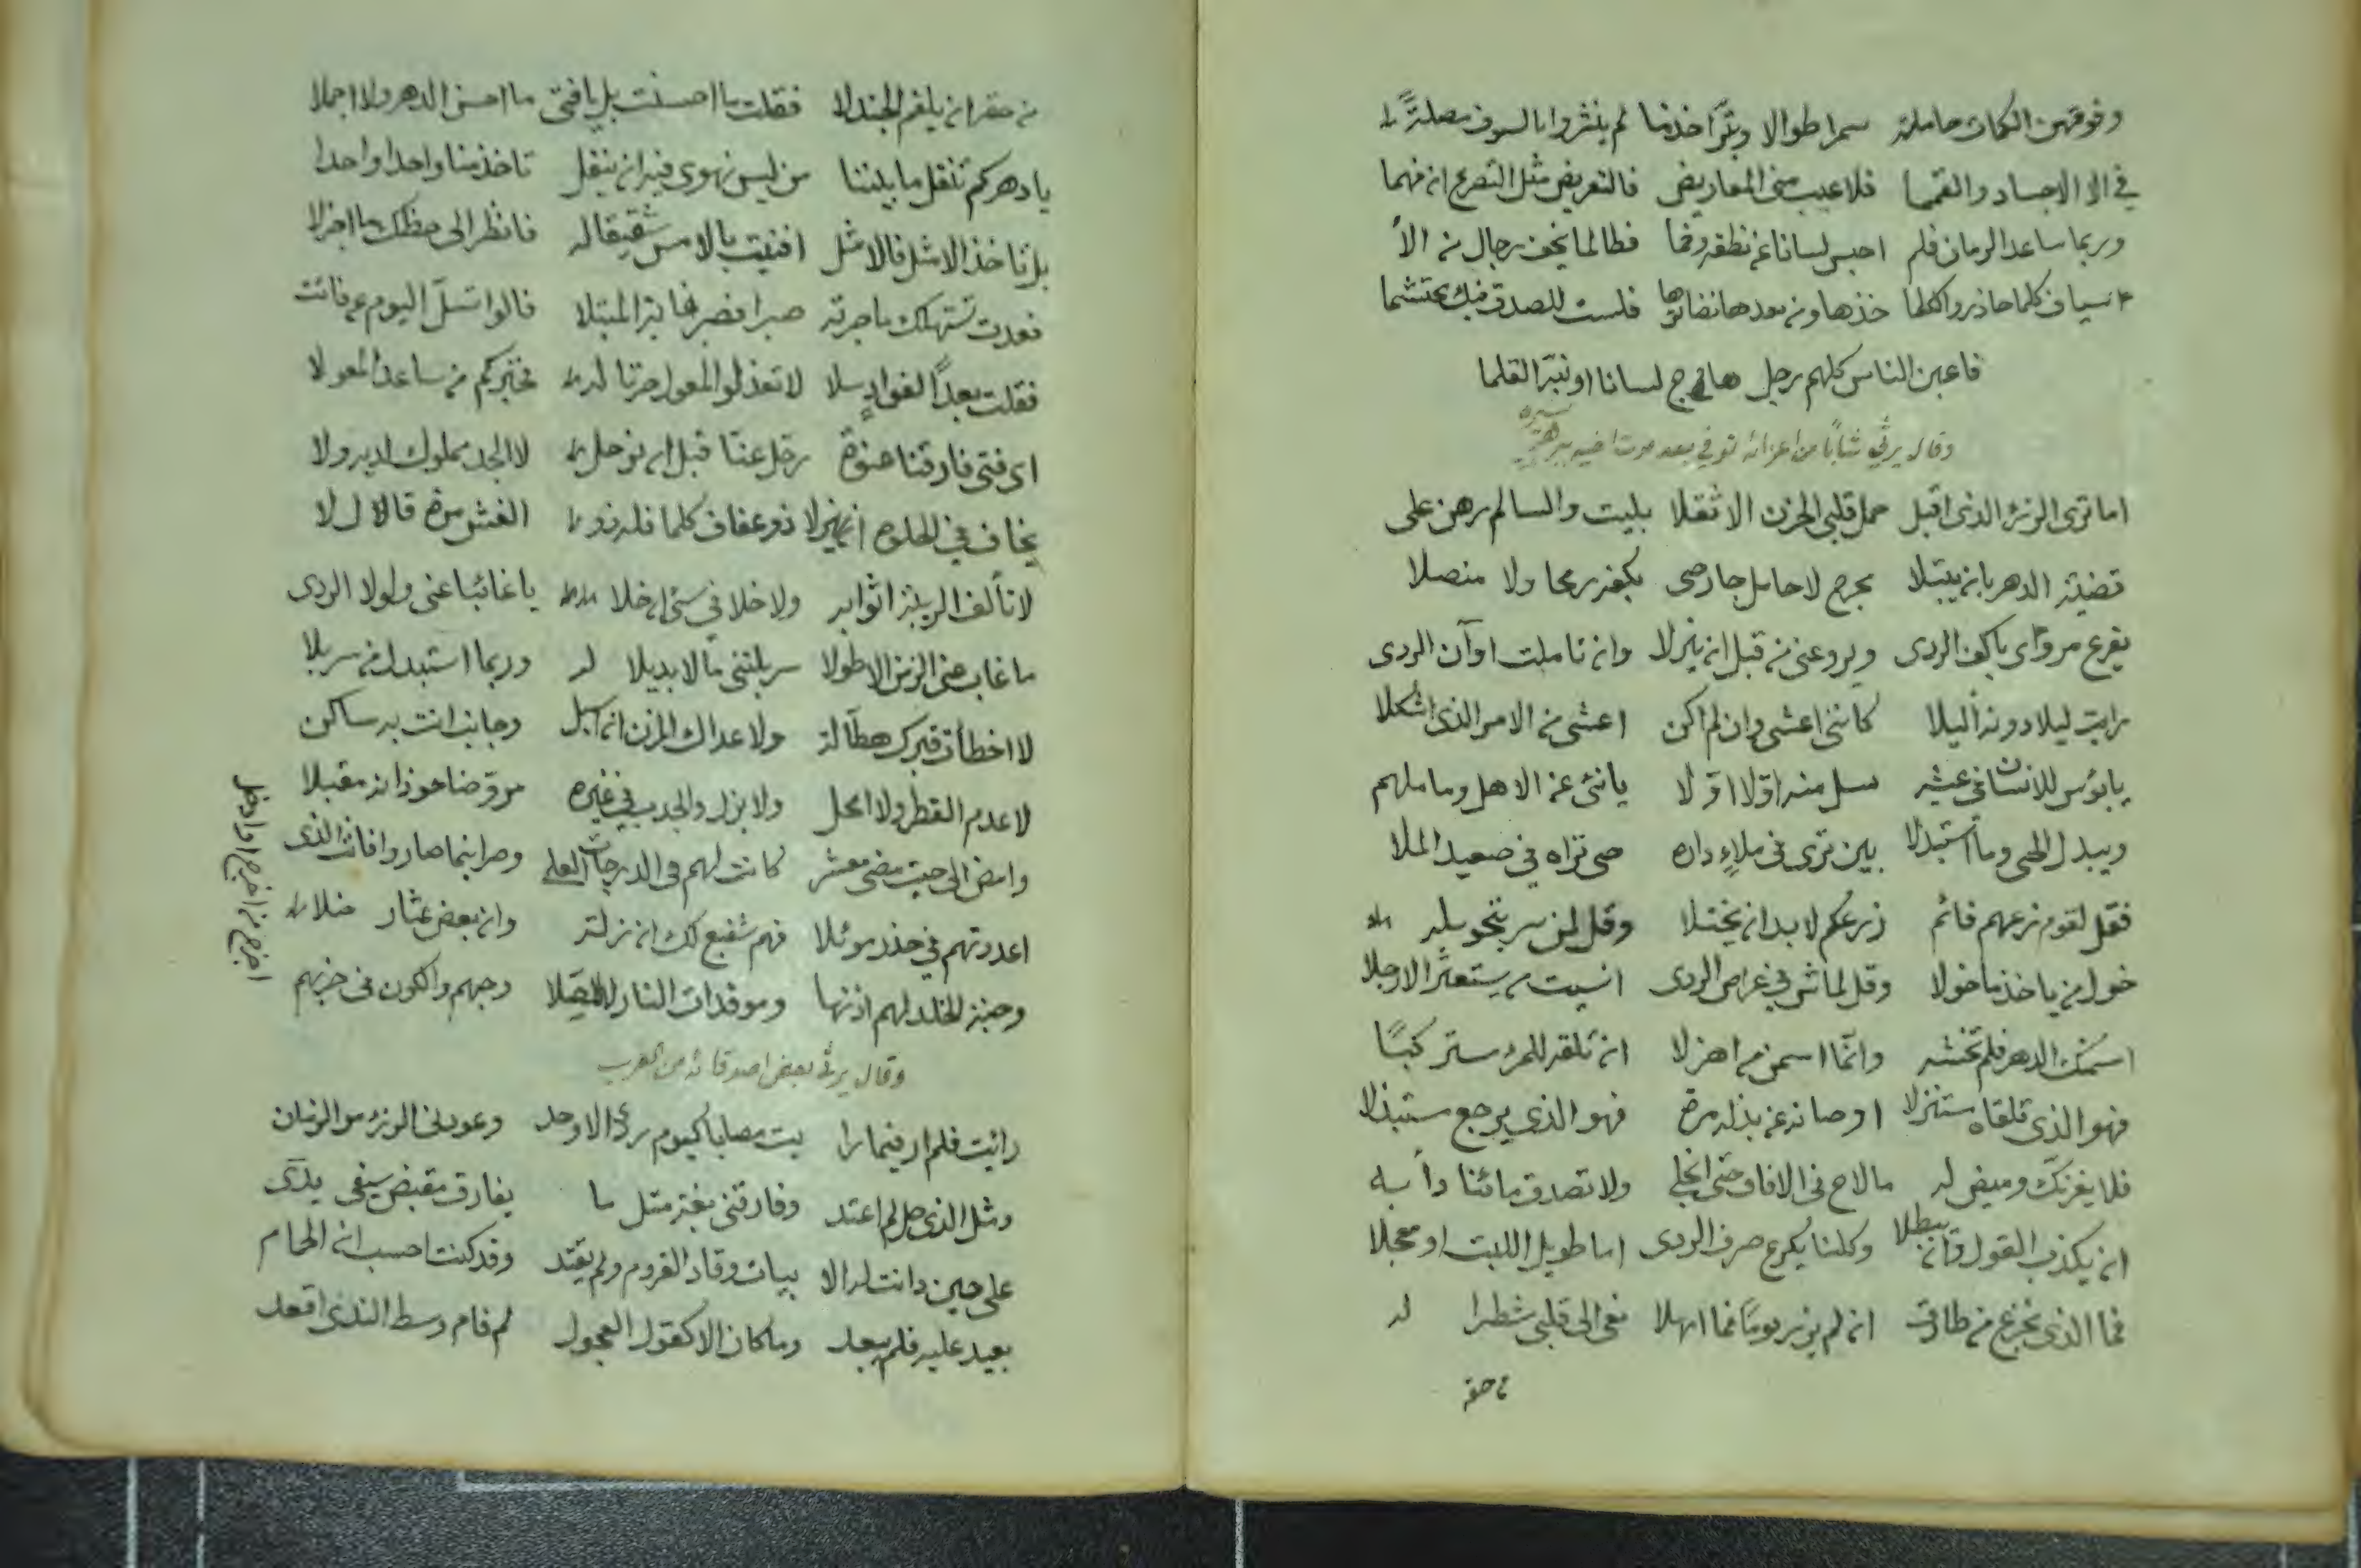 وفوقهن الكماة حاملة سمرا طوالا وبترا خذما لم ينثروا بالسيوف مصلتة
في الا الاجساد والقمما فلا عيب مني المعاريض فالتعريض مثل التصريح ان فهما
وربما ساعد الزمان فلم احبس لسانا عن نطقه وفما فطالما يخف رجال من الأ
سياف كلما حاذروا الكلما خذها ومن بعدها نضائرها فلست للصدق فيك محتشما
فاعين الناس كلهم رجل هاج لسانا او نبه القلما
وقال يرثي شابا من اعزائه توفي بعد موت اخيه بيسيره
اما ترى الرزء الذي اقبل حمل قلبي الحزن الاثقلا بليت والسالم رهن على
قضية الدهر بان يبتلا بجرح لا حامل جارحي بكفه رمحا ولا منصلا
يقرع مروتاي باكف الردى ويروعني من قبل ان ينزلا وان تاملت اوآن الردى
رايت ليلا دونه أليلا كانني اعشى وان لم اكن اعشى من الامر الذي اشكلا
يابؤس للانسان في عيشه يسل منه اولا اولا يانئ عن الاهل وما ملهم
ويبدل الحي وما استبدلا بين ترى في ملاء داره حتى تراه في صعيد الملا
فقل لقوم زرعهم قائم زرعكم لابد ان يختلا وقل لمن سر بتخويله
خول من ياخذ ما خولا وقل لماش في عراص الردى انسيت من يستعثر الارجلا
اسمنك الدهر فلم تخشه وانما اسمن من اهزلا ان تلقه للمرء ستر كبسا
فهو الذي تلقاه مستنزلا او صانه عن بذله مرة فهو الذي يرجع مستبذلا
فلا يغرنك وميض له مالاح في الافاق حتى انجلى ولا تصدق مائنا دأبه
ان يكذب القول وان يبطلا وكلنا يكرع صرف الردى اما طويل اللبث او معجلا
فما الذي نجزع من طارق ان لم يزر يوما فما امهلا نعي الى قلبي شطرا له
من حقه
من حقه ان يلقم الجندلا فقلت ما احسنت بل يا فتى ما احسن الدهر ولا اجملا
يا دهركم تنقل ما بيننا من ليس نهوى فيه ان ينقل تاخذ منا واحدا واحدا
بل تاخذ الامثل فالامثل افنيت بالامس شقيقا له فانظر الى حظك ما اجزلا
فعدت تستهلك ما جرته صبرا فصبر غاية المبتلا قالوا تسل اليوم عن فائت
فقلت بعدا لفؤاد سلا لا تعذلوا المعول حزنا له نخبركم من ساعد المعولا
اي فتى فارقنا عنوة رحل عنا قبل ان نوحل لا الجد مملوك لديه ولا
يخاف في الحلوه ان يهزلا ذو عفاف كلما قله ذو الغش مرة قال لا
لا تألف الريبة اثوابه ولا خلا في سئ ان خلا يا غائبا عني ولولا الردى
ما غاب عني الزمن الاطولا سربلتني مالا بديلا له وربما استبدل من سربلا
لا اخطات قبرك هطالة ولا عداك المزن ان اسبل وجانب انت به ساكن
لا عدم القطر ولا امحل ولا يزل والجدب في غيره مروضا حوذانه مقبلا
وامض الى حيث مضى معشر كانت لهم في الدرجات العلى وصر اينما صاروا فانت الذي
اعددتهم في حذر موئلا فهم شفيع لك ان زلة وان بعض عثار
وجنة الخلد لهم اذنها وموقدات النار للمصطلا وجههم واكون في حزبهم
وقال يرثي بعض اصدقائه من العرب
رائيت فلم ار فيما را يت مصابا كيوم ردى الاوحد وعودني الرزء مر الزمان
ومثل الذي حل لم اعتد وفارقني بغتة مثل ما يفارق مقبض سيفي يدى
على حين دانت له الا بيات وقاد القروم ولم يقتد وقد كنت احسب ان الحمام
بعيد عليه فلم يبعد وما كان الا كقول العجول لم قام وسط الندى اقعد